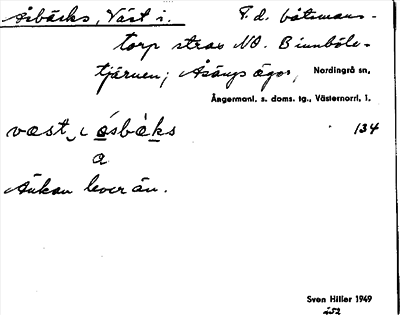 Åsbäcks, Väst i. F.d. båtsmans-
torp strax NO. Binnböle-
tjärnen; Åsängs ägor, Nordingrå sn,
Ångermanl. s. doms. tg., Västernorrl. l.
væst, i åsbäks 134
a
Änkan lever än.
Sven Hiller 1949